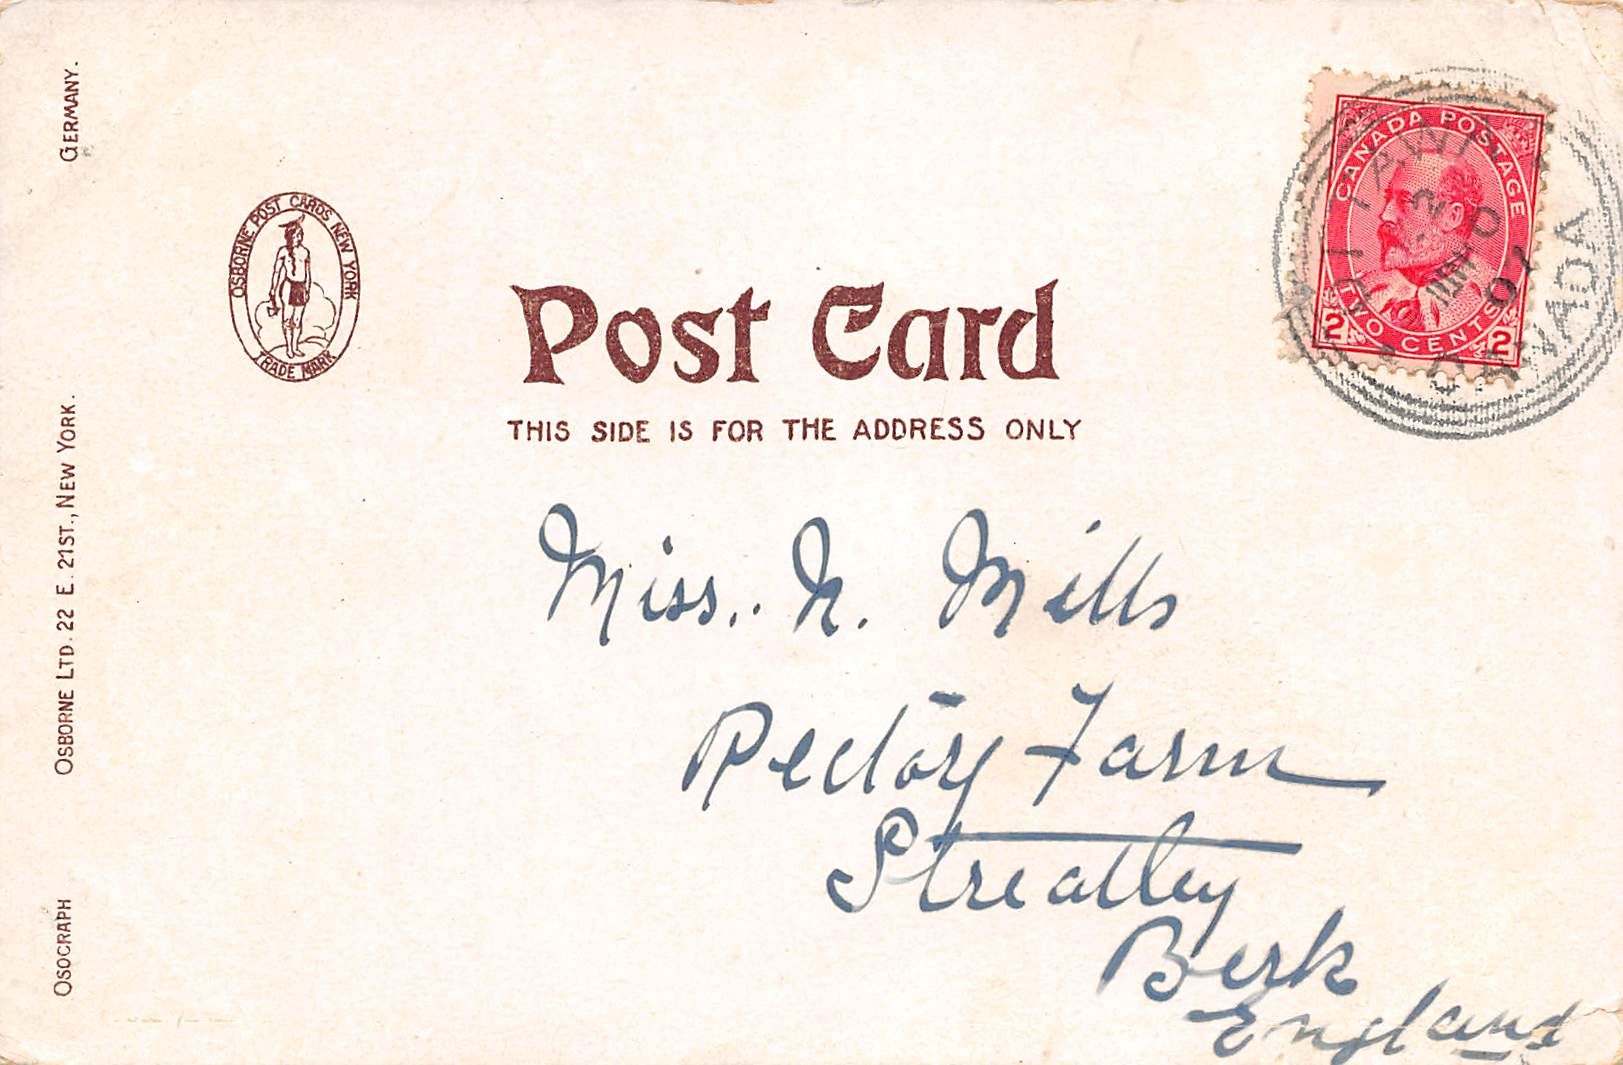 GERMANY.
OSBORNE LTD. 22 E. 21ST., NEW YORK.
OSOCRAPH
OSBORNE POST CARDS NEW YORK
TRADE MARK
Post Card
THIS SIDE IS FOR THE ADDRESS ONLY
CANADA POSTAGE
TWO CENTS
2 2
CANADA
Miss. N. Mills
Rectory Farm
Streatley
Berk
England